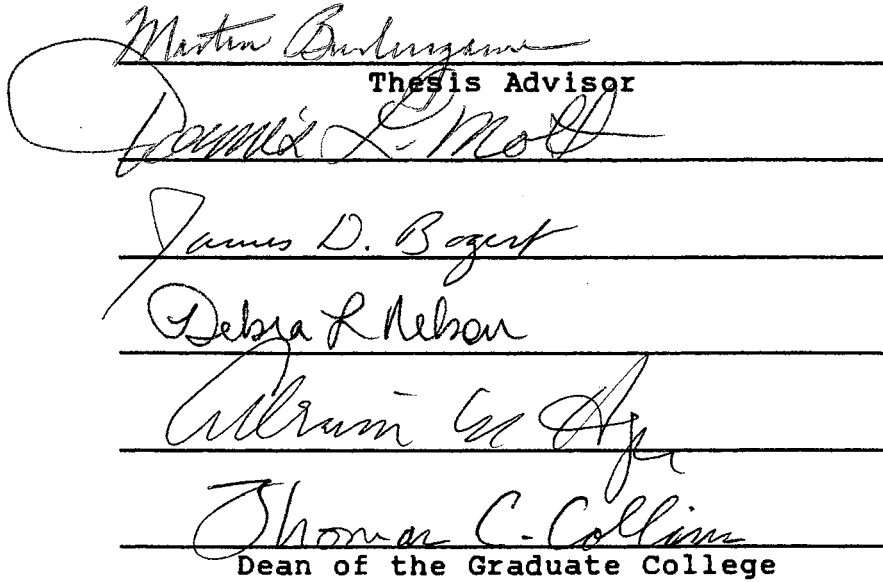 Martin Burlingame
Thesis Advisor
James L. Mott
James D. Bogert
Debra L Nelson
Thomas C. Collins
Dean of the Graduate College